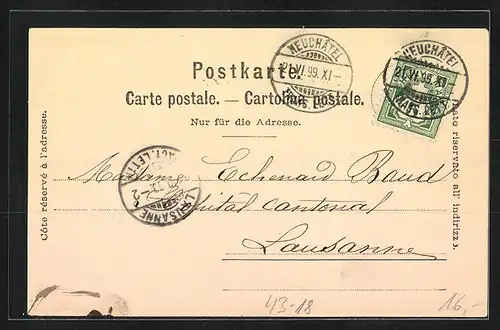 NEUCHÂTEL
21.VI.99.XI-
NEUCHÂTEL
21.VI.99.XI
Postkarte.
Carte postale. — Cartolina postale.
Nur für die Adresse.
Côte réservé à l'adresse.
Lato riservato all' indirizzo.
Madame Echenard Baud
Hôpital cantonal
Lausanne
LAUSANNE
43-18
16,-